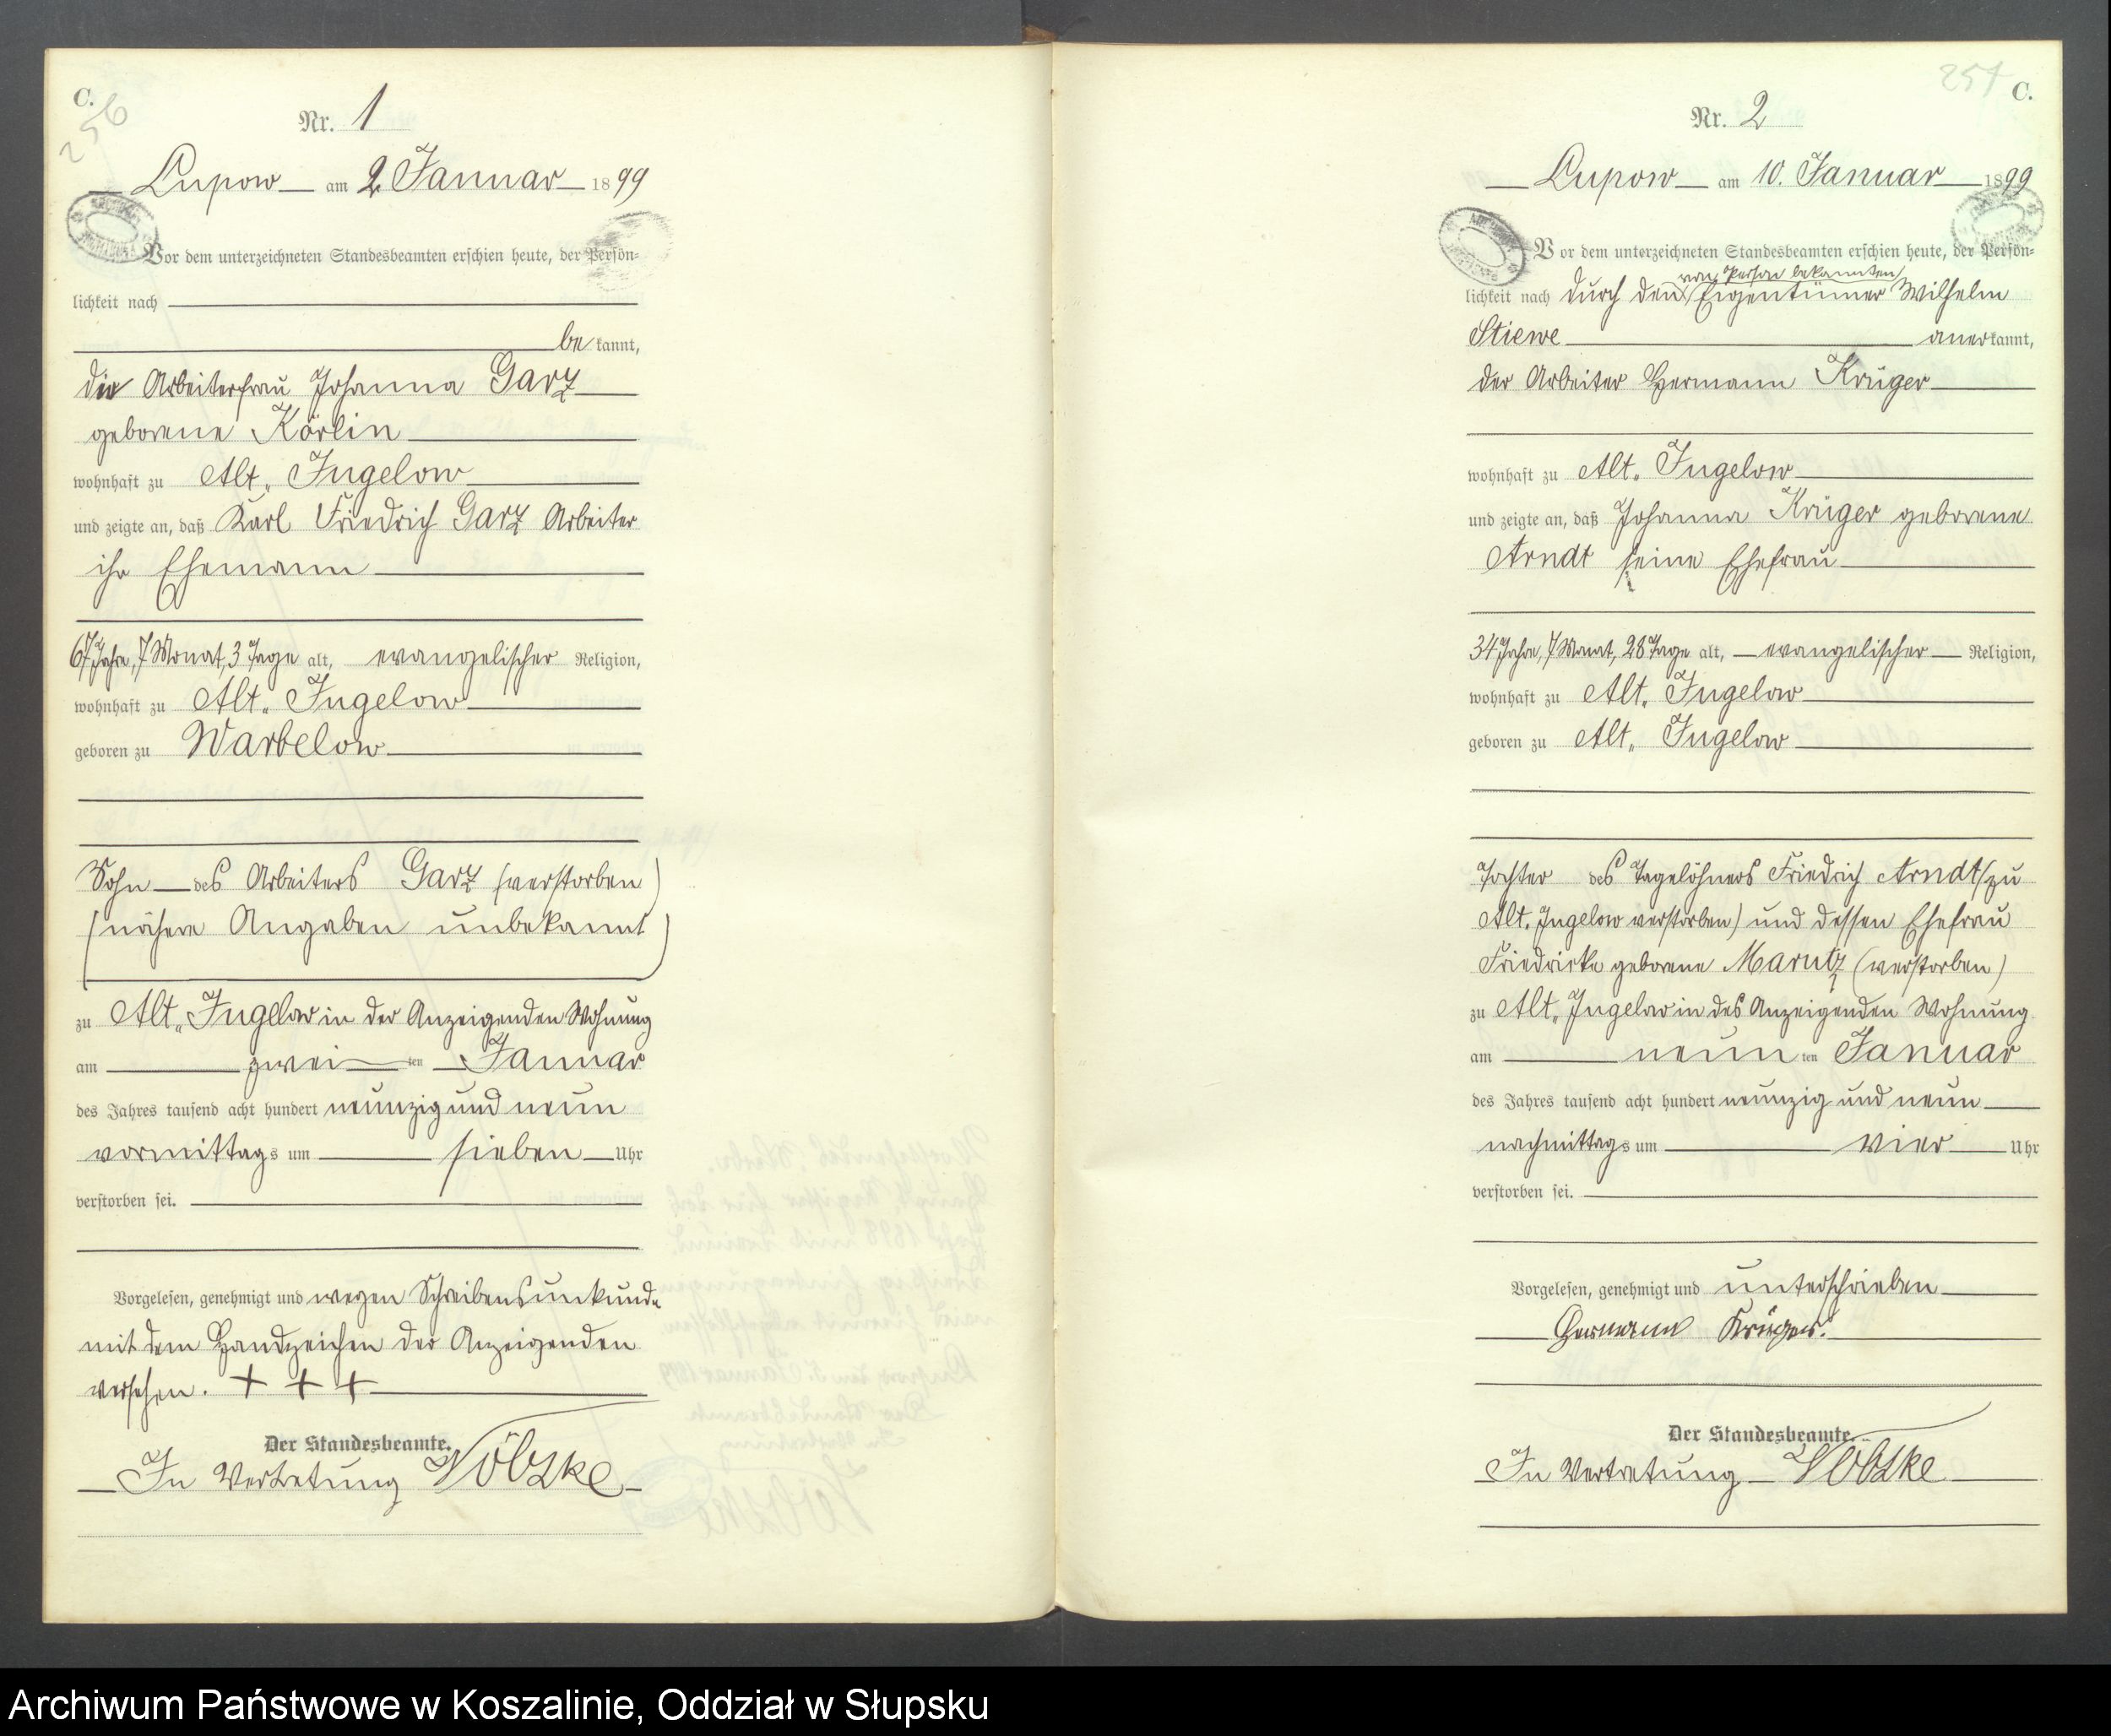 C.
256
Nr. 1
Lupow am 2. Januar 1899
Vor dem unterzeichneten Standesbeamten erschien heute, der Persön-
lichkeit nach
be kannt,
die Arbeiterfrau Johanna Garz
geborene Körlin
wohnhaft zu Alt. Jugelow
und zeigte an, daß Karl Friedrich Garz Arbeiter
ihr Ehemann
67 Jahre, 7 Monat, 3 Tage alt, evangelischer Religion,
wohnhaft zu Alt. Jugelow
geboren zu Warbelow
Sohn des Arbeiters Garz (verstorben)
(nähere Angaben unbekannt)
zu Alt. Jugelow in der Anzeigenden Wohnung
am zwei ten Januar
des Jahres tausend acht hundert neunzig und neun
vormittags um sieben Uhr
verstorben sei.
Vorgelesen, genehmigt und wegen Schreibensunkunde
mit dem Handzeichen der Anzeigenden
versehen. + + +
Der Standesbeamte.
In Vertretung
257 C.
Nr. 2
Lupow am 10. Januar 1899
Vor dem unterzeichneten Standesbeamten erschien heute, der Persön-
von Person bekannten
lichkeit nach durch den Eigentümer Wilhelm
Stiewe anerkannt,
der Arbeiter Hermann Krüger
wohnhaft zu Alt. Jugelow
und zeigte an, daß Johanna Krüger geborene
Arndt seine Ehefrau
34 Jahre, 7 Monat, 28 Tage alt, evangelischer Religion,
wohnhaft zu Alt. Jugelow
geboren zu Alt. Jugelow
Tochter des Tagelöhners Friedrich Arndt (zu
Alt. Jugelow verstorben) und dessen Ehefrau
Friedricke geborene Marutz (verstorben)
zu Alt. Jugelow in des Anzeigenden Wohnung
am neun ten Januar
des Jahres tausend acht hundert neunzig und neun
nachmittags um vier Uhr
verstorben sei.
Vorgelesen, genehmigt und unterschrieben
Hermann Krüger.
Der Standesbeamte.
In Vertretung
Archiwum Państwowe w Koszalinie, Oddział w Słupsku